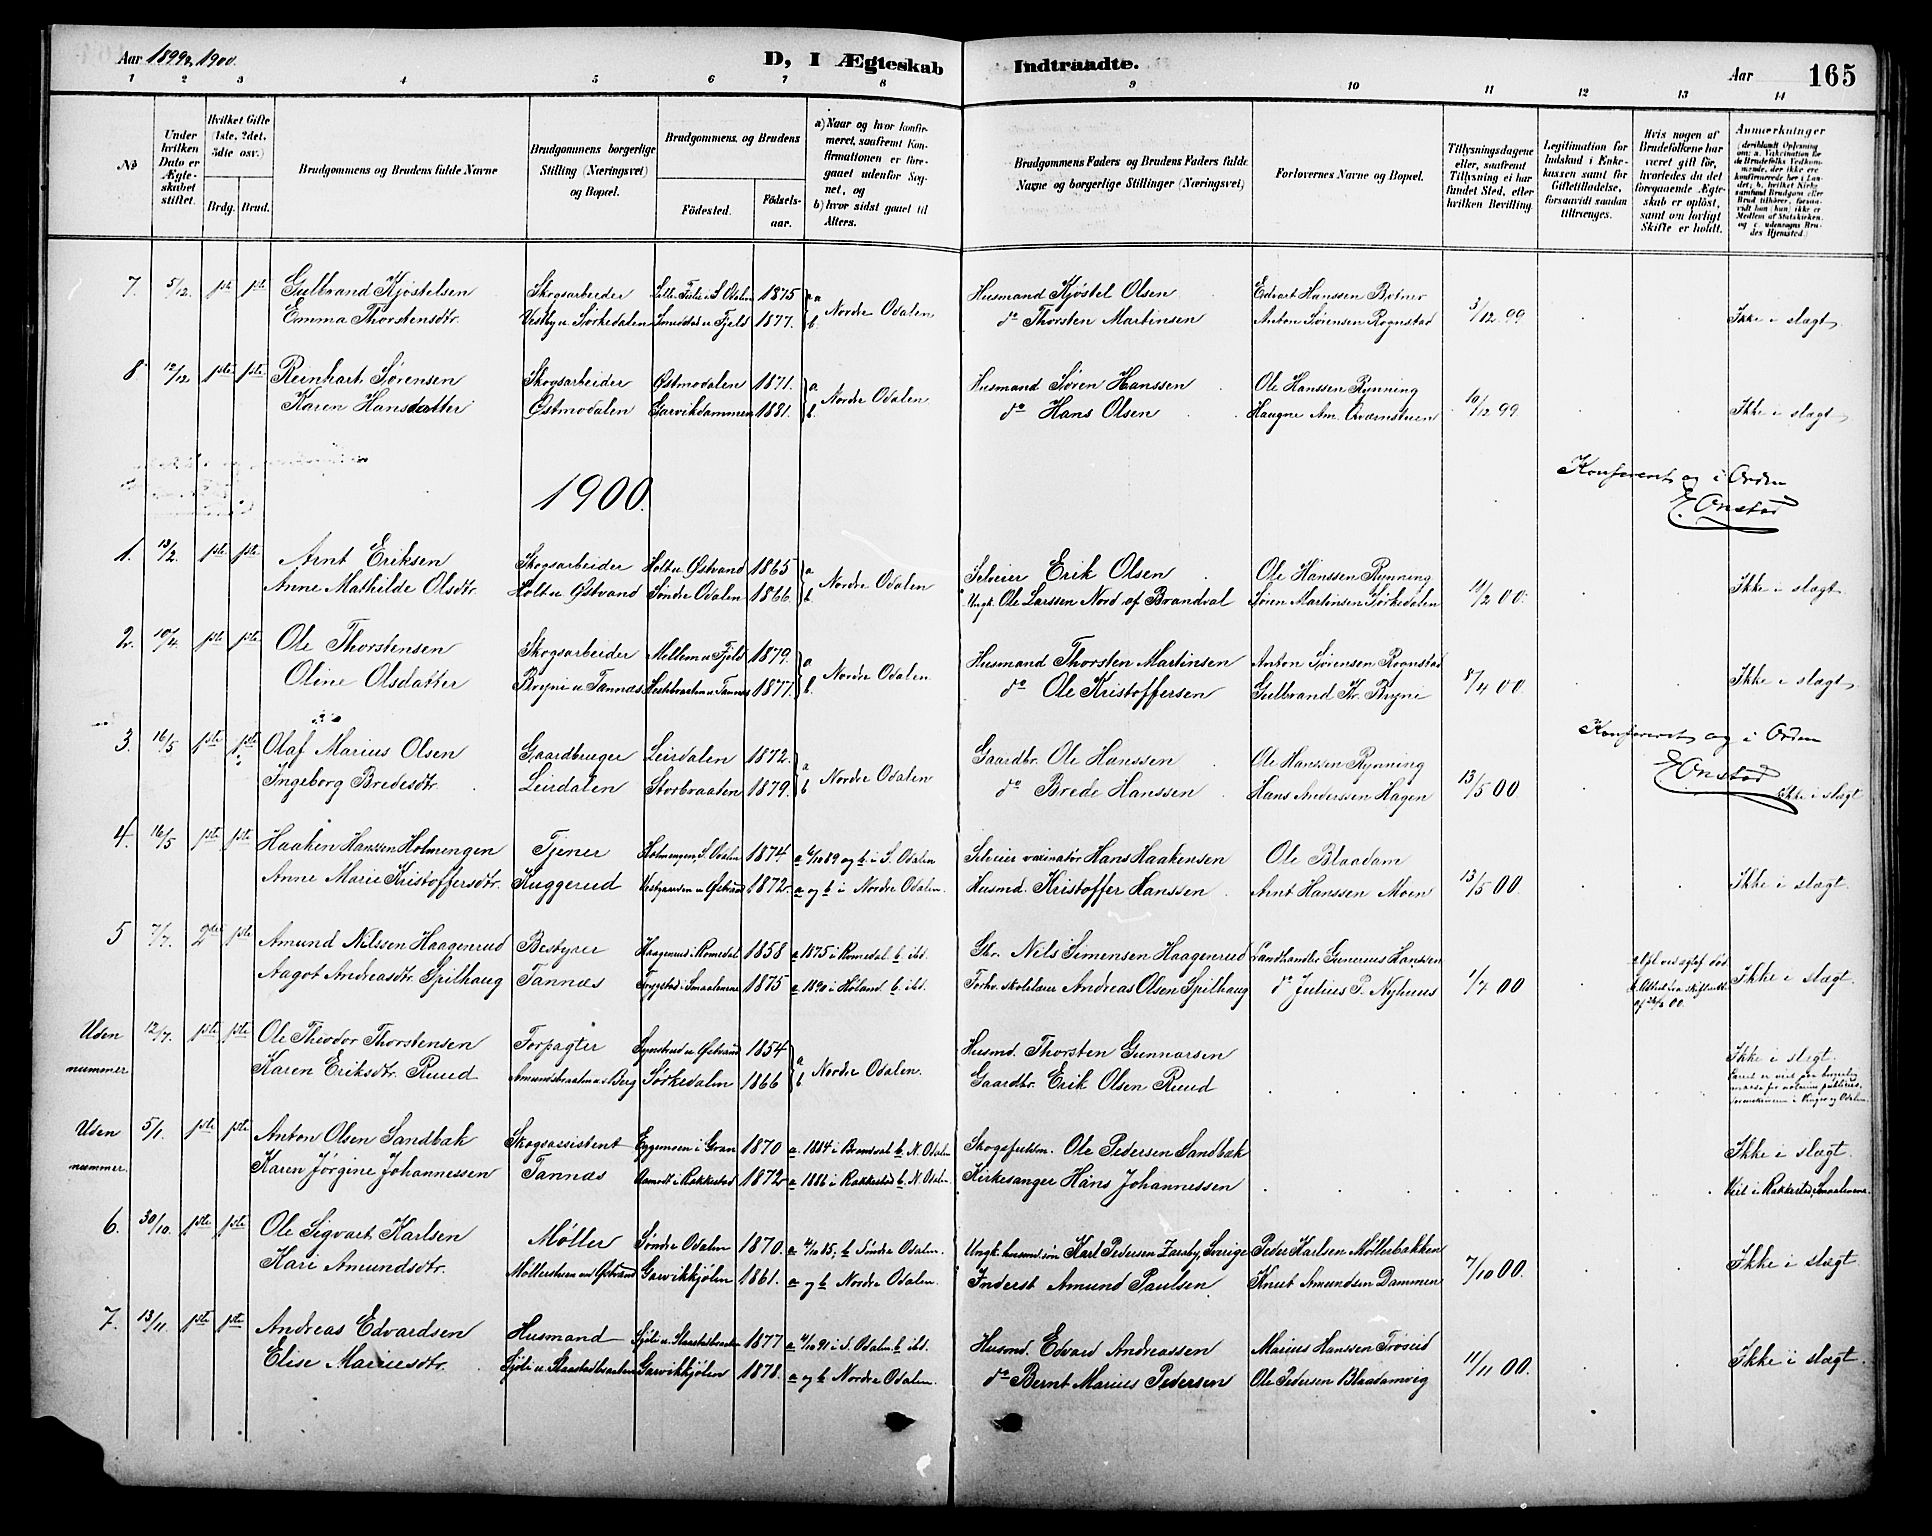 Aar 1899 & 1900.
D, I Ægteskab Indtraadte.
Aar 165
1 2 3 4 5 6 7 8 9 10 11 12 13 14
No
Under hvilken Dato er Ægteskabet stiftet.
Hvilket Gifte (1ste, 2det, 3die osv.)
Brdg. Brud.
Brudgommens og Brudens fulde Navne
Brudgommens borgerlige Stilling (Næringsvei) og Bopæl.
Brudgommens og Brudens
Fødested. Fødselsaar.
a) Naar og hvor konfirmeret, saafremt Konfirmationen er foregaaet udenfor Sognet, og
b) hvor sidst gaaet til Alters.
Brudgommens Faders og Brudens Faders fulde Navne og borgerlige Stillinger (Næringsvei)
Forlovernes Navne og Bopæl.
Tillysningsdagene eller, saafremt Tillysning ei har fundet Sted, efter hvilken Bevilling
Legitimation for Indskud i Enkekassen samt for Giftetilladelse, forsaavidt saadan tiltrænges.
Hvis nogen af Brudefolkene har været gift før, hvorledes da det foregaaende Ægteskab er opløst, samt om lovligt Skifte er holdt.
Anmærkninger (deriblandt Oplysning om: a. Vaksination for de Brudefolks Vedkommende, der ikke ere konfirmerede her i Landet; b. hvilket Kirkesamfund Brudgom eller Brud tilhører, forsaavidt han (hun) ikke er Medlem af Statskirken, og c. udensogns Brudes Hjemsted.)
7. 5/12. 1ste 1ste Gulbrand Kjøstelsen Skogsarbeider Lille Fiske i S. Odalen 1875 a Nordre Odalen Husmand Kjøstel Olsen Edvart Hanssen Botner 3/12 99 Ikke i slægt
Emma Thorstensdtr. Vestby u. Sørkedalen u. Fjeld 1877. b do Thorsten Martinsen Anton Sørensen Rognstad
8 12/12 1ste 1ste Reinhart Sørensen Skogsarbeider Østmodalen 1871. a Nordre Odalen Husmand Søren Hanssen Ole Hanssen Rynning 10/12 99 Ikke i slægt
Karen Hansdatter Østmodalen Garvikdammen 1881. b. do Hans Olsen Haagne Am. Qværnstuen
1900.
Konfereret og i Orden
E. Onstad
1. 13/2 1ste 1ste Arnt Eriksen Skogsarbeider Holt u. Østvand 1865 a Nordre Odalen Selveier Erik Olsen Ole Hanssen Rynning 11/2 00. Ikke i slægt
Anne Mathilde Olsdtr. Holt u. Østvand Søndre Odalen 1866. b Ungk. Ole Larssen Nord af Brandval Søren Martinsen Sørkedalen
2. 10/4 1ste 1ste Ole Thorstensen Skogsarbeider Mellem u. Fjeld 1879. a Nordre Odalen Husmand Thorsten Martinsen Anton Sørensen Rognstad 8/4 00 Ikke i slægt
Oline Olsdatter Bryni u. Tannæs Hestebraaten u. Tannæs 1877. b. do Ole Kristoffersen Gulbrand Kr. Bryni
3. 16/5 1ste 1ste Olaf Marius Olsen Gaardbruger Leirdalen 1872. a Nordre Odalen Gaardbr. Ole Hanssen Ole Hanssen Rynning 13/5 00 Konfereret og i Orden
Ingeborg Bredesdtr. Leirdalen Storbraaten 1879. b do Brede Hanssen Hans Anderssen Hagen E. Onstad Ikke i slægt
4. 16/5 1ste 1ste Haaken Hanssen Holmengen Tjener Holmengen, S. Odalen 1874 a 6/10 89 og b. i S. Odalen Selveier vaxinatør Hans Haakensen Ole Blaadam 13/5 00 Ikke i slægt.
Anne Marie Kristoffersdtr. Kuggerud Vestgaarden u. Østvand 1872. a og b i Nordre Odalen. Husmd. Kristoffer Hanssen Arnt Hanssen Moen
5 7/7. 2den 1ste Amund Nilssen Haagenrud Bestyrer Haagenrud i Romedal 1858 a 1875 i Romedal b. ibd. Gbr. Nils Simensen Haagenrud Landhandler Gunerius Hanssen 1/7 00 Ikke i slægt.
Aagot Andreasdtr. Spilhaug Tannæs Trygstad i Smaalenene 1875 a 1890 i Høland b. ibd. Forhv. skolelærer Andreas Olsen Spilhaug do Julius P. Nyhuus
Uden nummer 12/7. 1ste 1ste Ole Theodor Thorstensen Forpagter u. Østvand 1854 a Nordre Odalen. Husmd. Thorsten Gunnarsen Ikke i slægt.
Karen Eriksdtr. Ruud Amundsbraaten u. Berg Sørkedalen 1866 b Gaardbr. Erik Olsen Ruud
Uden nummer. 5/1. 1ste 1ste Anton Olsen Sandbæk Skogsassistent Eggemoen i Gran 1870 a. 1884 i b. N. Odalen Skogsfuldm. Ole Pedersen Sandbæk Ikke i slægt.
Karen Jørgine Johannessen Tannæs i Rakkestad 1872 a 1886 i Rakkestad b. N. Odalen. Kirkesanger Hans Johannessen Viet i Rakkestad i Smaalenene.
6. 30/10. 1ste 1ste Ole Sigvart Karlsen Møller Søndre Odalen 1870. a 4/10 85, b Søndre Odalen. Ungk. Karl Pedersen Sverige Peder Karlsen Møllerbakken 7/10 00. Ikke i slægt.
Kari Amundsdtr. Møllerstuen ved Østvand Garvikkjølen 1861. a og b Nordre Odalen. Inderst Amund Paulsen Knut Amundsen Dammen
7. 13/11. 1ste 1ste Andreas Edvardsen Husmand Sjøli u. Skaarstadbraaten 1877 a 4/10 91 i S. Odalen. b ibd. Husmd. Edvard Andreassen Marius Hanssen Trøseid 11/11 00. Ikke i slægt.
Elise Mariusdtr. Sjøli u. Skaarstadbraaten Garvikkjølen 1878. a og b Nordre Odalen. do Bernt Marius Pedersen Ole Pedersen Blaadamvig